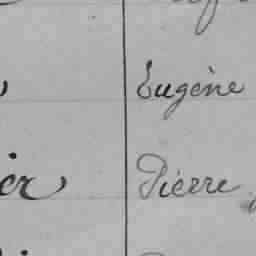 Eugène
er Pierre